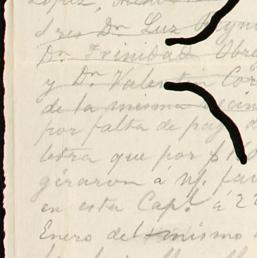 Lopez,
tres Dn. Luz Reyn
Dn. Trinidad Obre
y Dn. Valentin Cor
de la misma vecin
por falta de pago d
letra que por $ 1
giraron á N/. fav
en esta Capl. á 22
Enero del mismo